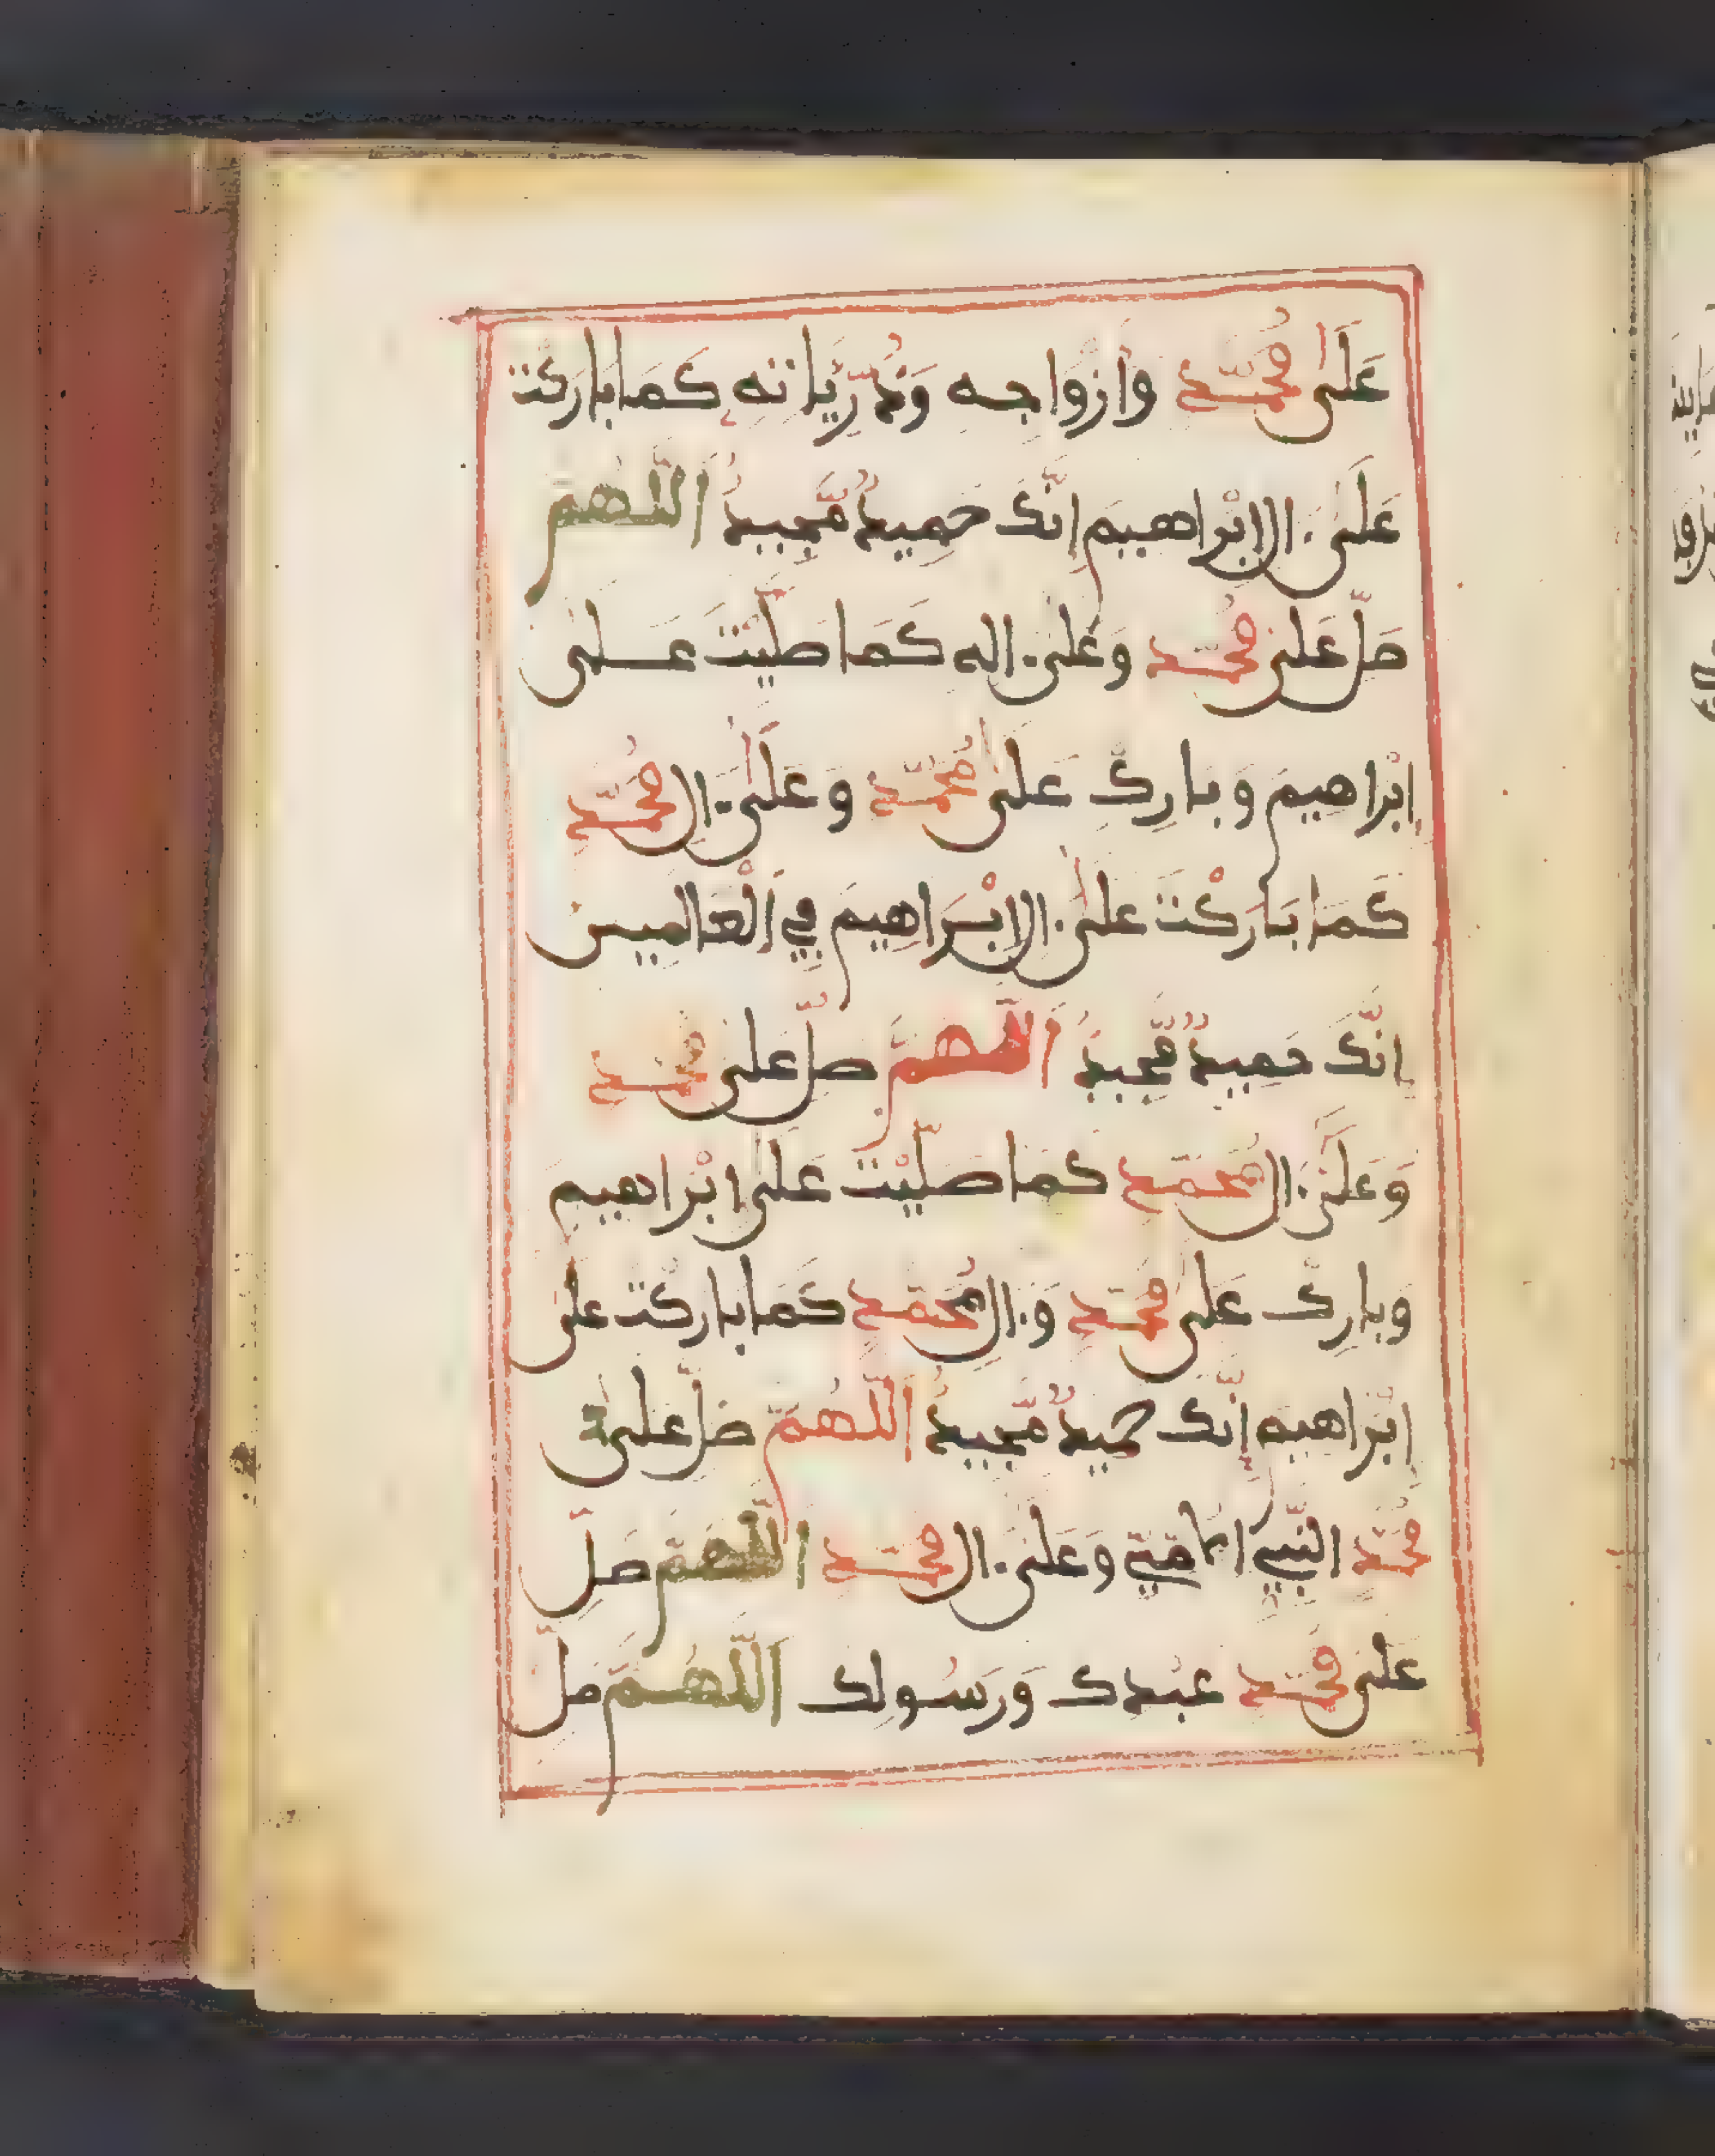 عَلَى مُحَمَّدٍ وَأَزْوَاجِهِ وَذُرِّيَّاتِهِ كَمَا بَارَكْتَ
عَلَى ءالِ إِبْرَاهِيمَ إِنَّكَ حَمِيدٌ مَّجِيدٌ اَللَّهُمَّ
صَلِّ عَلَى مُحَمَّدٍ وَعَلَى ءالِهِ كَمَا صَلَّيْتَ عَلَى
إِبْرَاهِيمَ وَبَارِكْ عَلَى مُحَمَّدٍ وَعَلَى ءالِ مُحَمَّدٍ
كَمَا بَارَكْتَ عَلَى ءالِ إِبْرَاهِيمَ فِي اَلْعَالَمِينَ
إِنَّكَ حَمِيدٌ مَّجِيدٌ اَللَّهُمَّ صَلِّ عَلَى مُحَمَّدٍ
وَعَلَى ءالِ مُحَمَّدٍ كَمَا صَلَّيْتَ عَلَى إِبْرَاهِيمَ
وَبَارِكْ عَلَى مُحَمَّدٍ وَءالِ مُحَمَّدٍ كَمَا بَارَكْتَ عَلَى
إِبْرَاهِيمَ إِنَّكَ حَمِيدٌ مَّجِيدٌ اَللَّهُمَّ صَلِّ عَلَى
مُحَمَّدٍ النَّبِيِّ الأُمِّيِّ وَعَلَى ءالِ مُحَمَّدٍ اَللَّهُمَّ صَلِّ
عَلَى مُحَمَّدٍ عَبْدِكَ وَرَسُولِكَ اَللَّهُمَّ صَلِّ